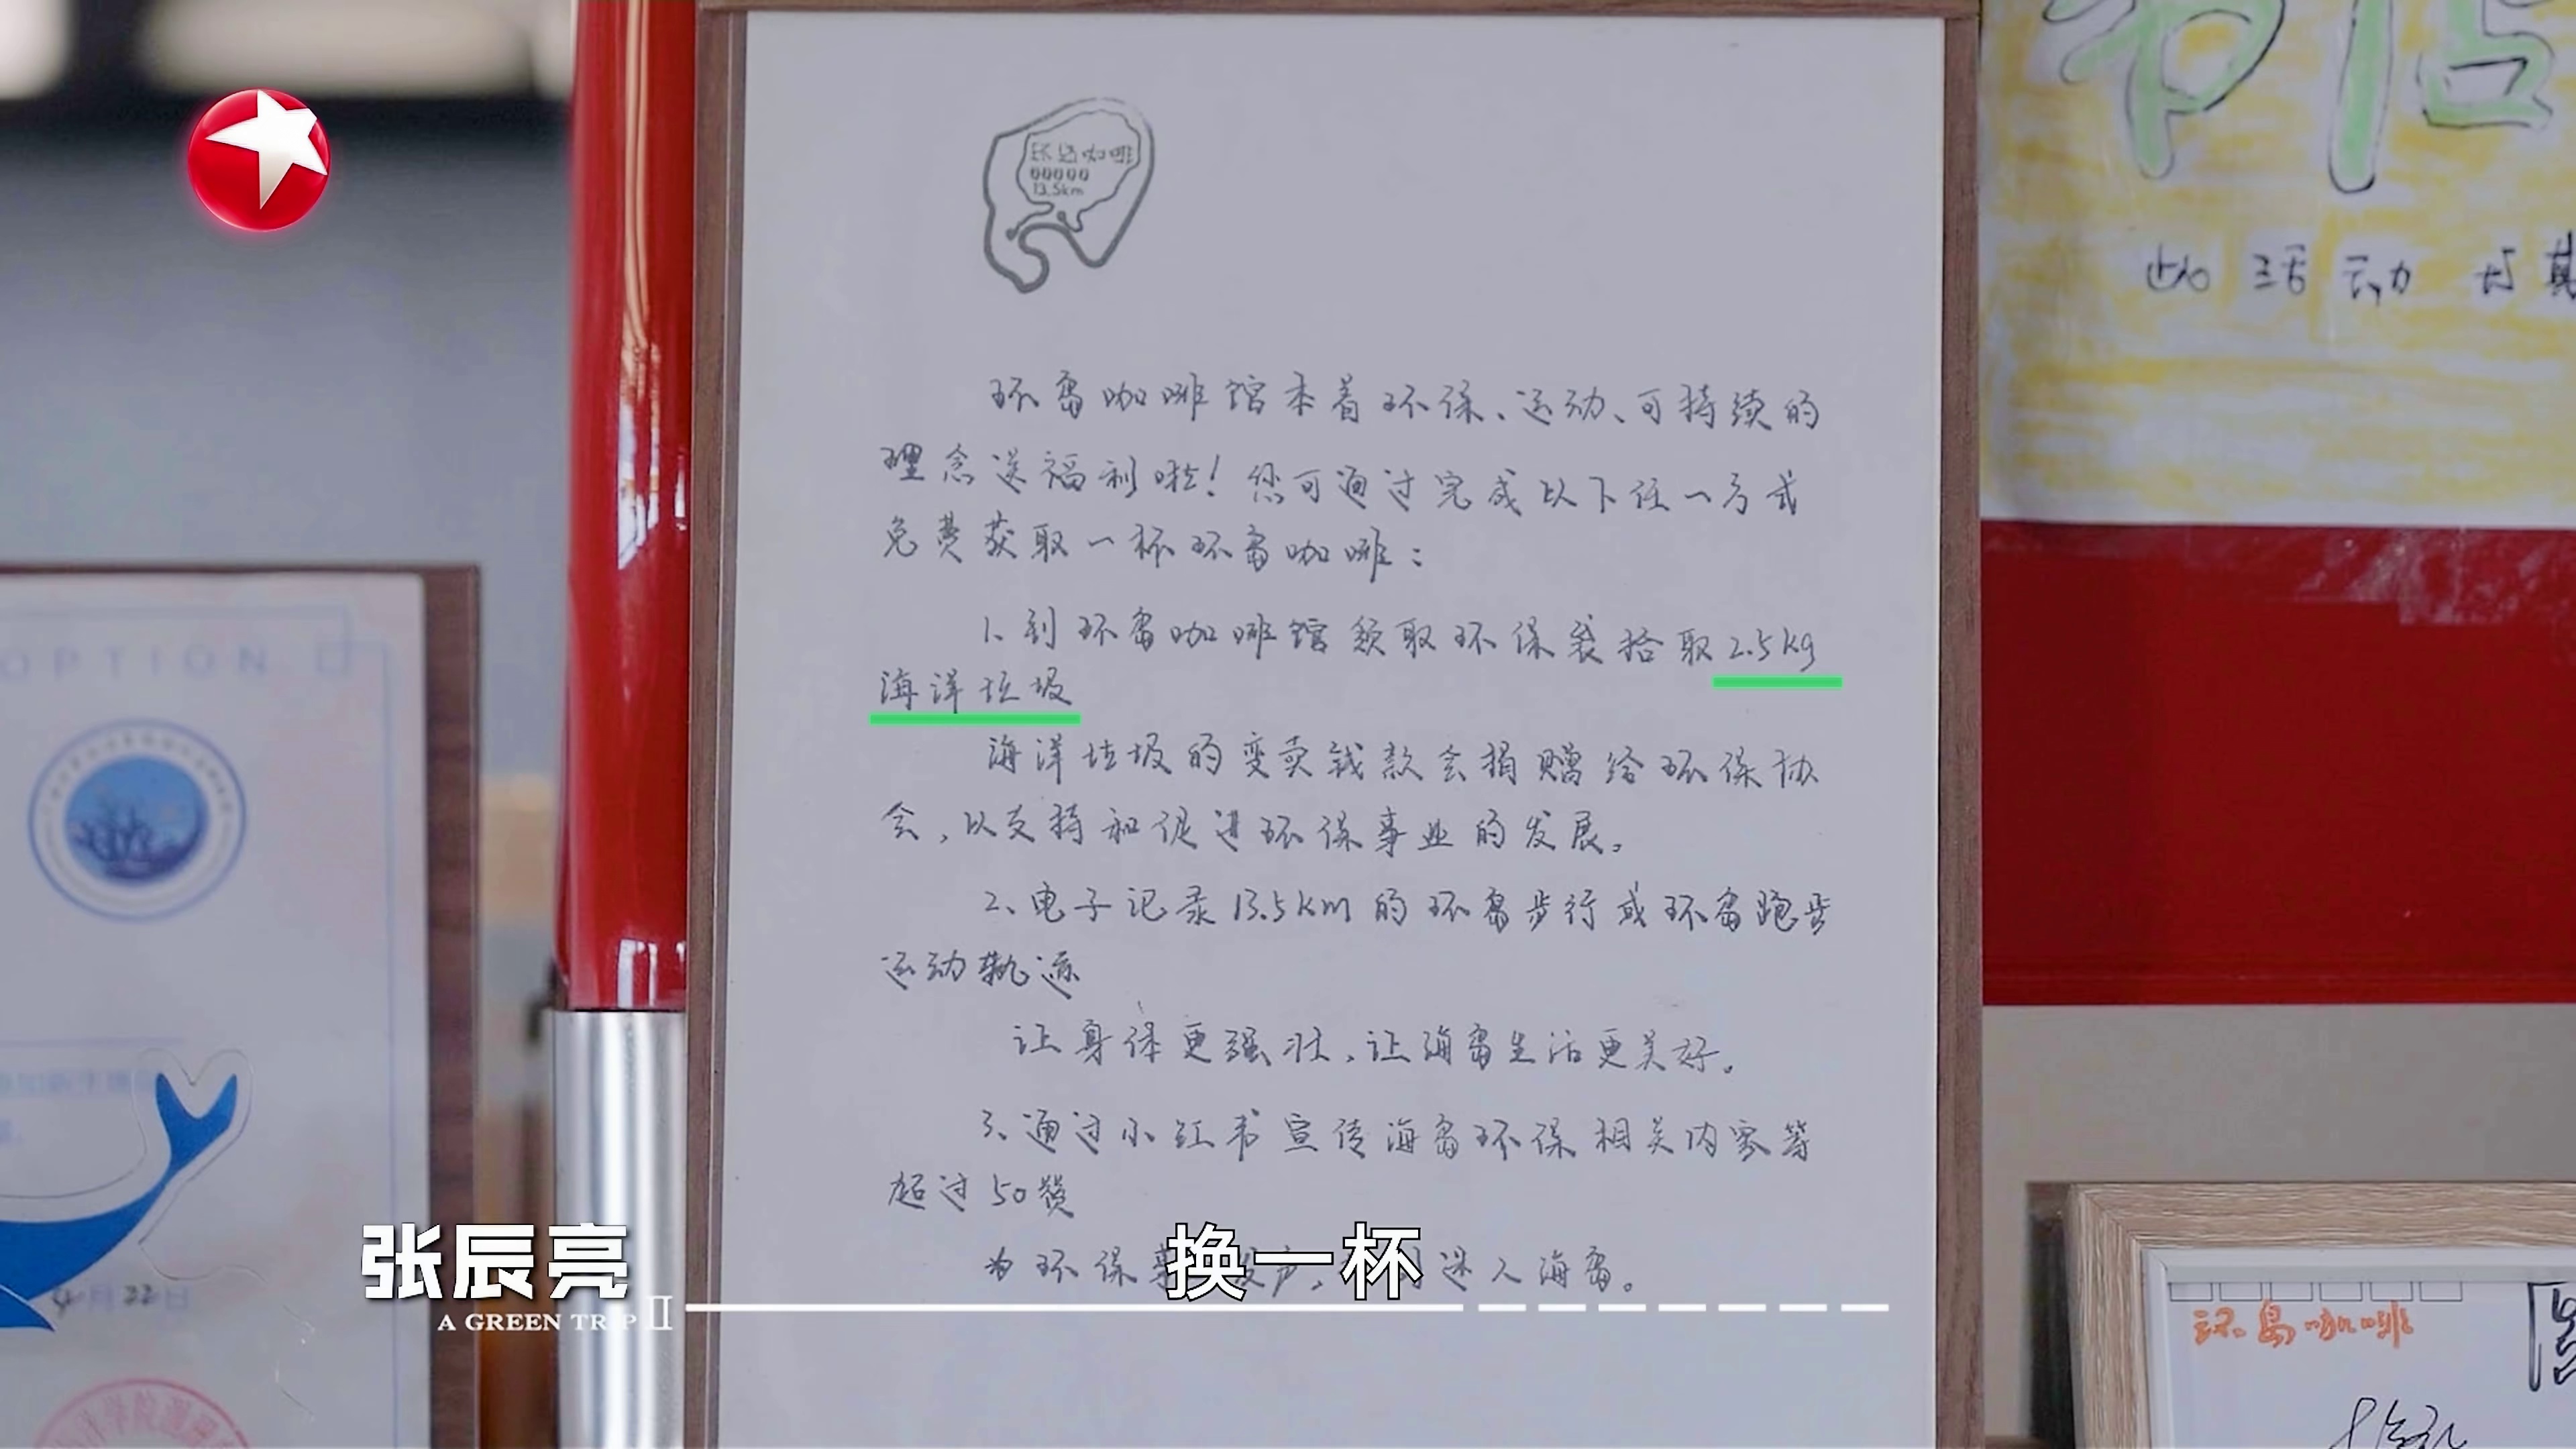 书店
此活动与其
环岛咖啡
13.5km
环岛咖啡馆本着环保、运动、可持续的
理念送福利啦！您可通过完成以下任一方式
免费获取一杯环岛咖啡：
1、到环岛咖啡馆领取环保袋拾取2.5kg
海洋垃圾
海洋垃圾的变卖钱款会捐赠给环保协
会，以支持和促进环保事业的发展。
2、电子记录13.5km的环岛步行或环岛跑步
运动轨迹
让身体更强壮，让海岛生活更美好。
3、通过小红书宣传海岛环保相关内容等
超过50赞
为环保 迷人海岛。
OPTION
月22日
张辰亮
换一杯
A GREEN TRIP II
环岛咖啡